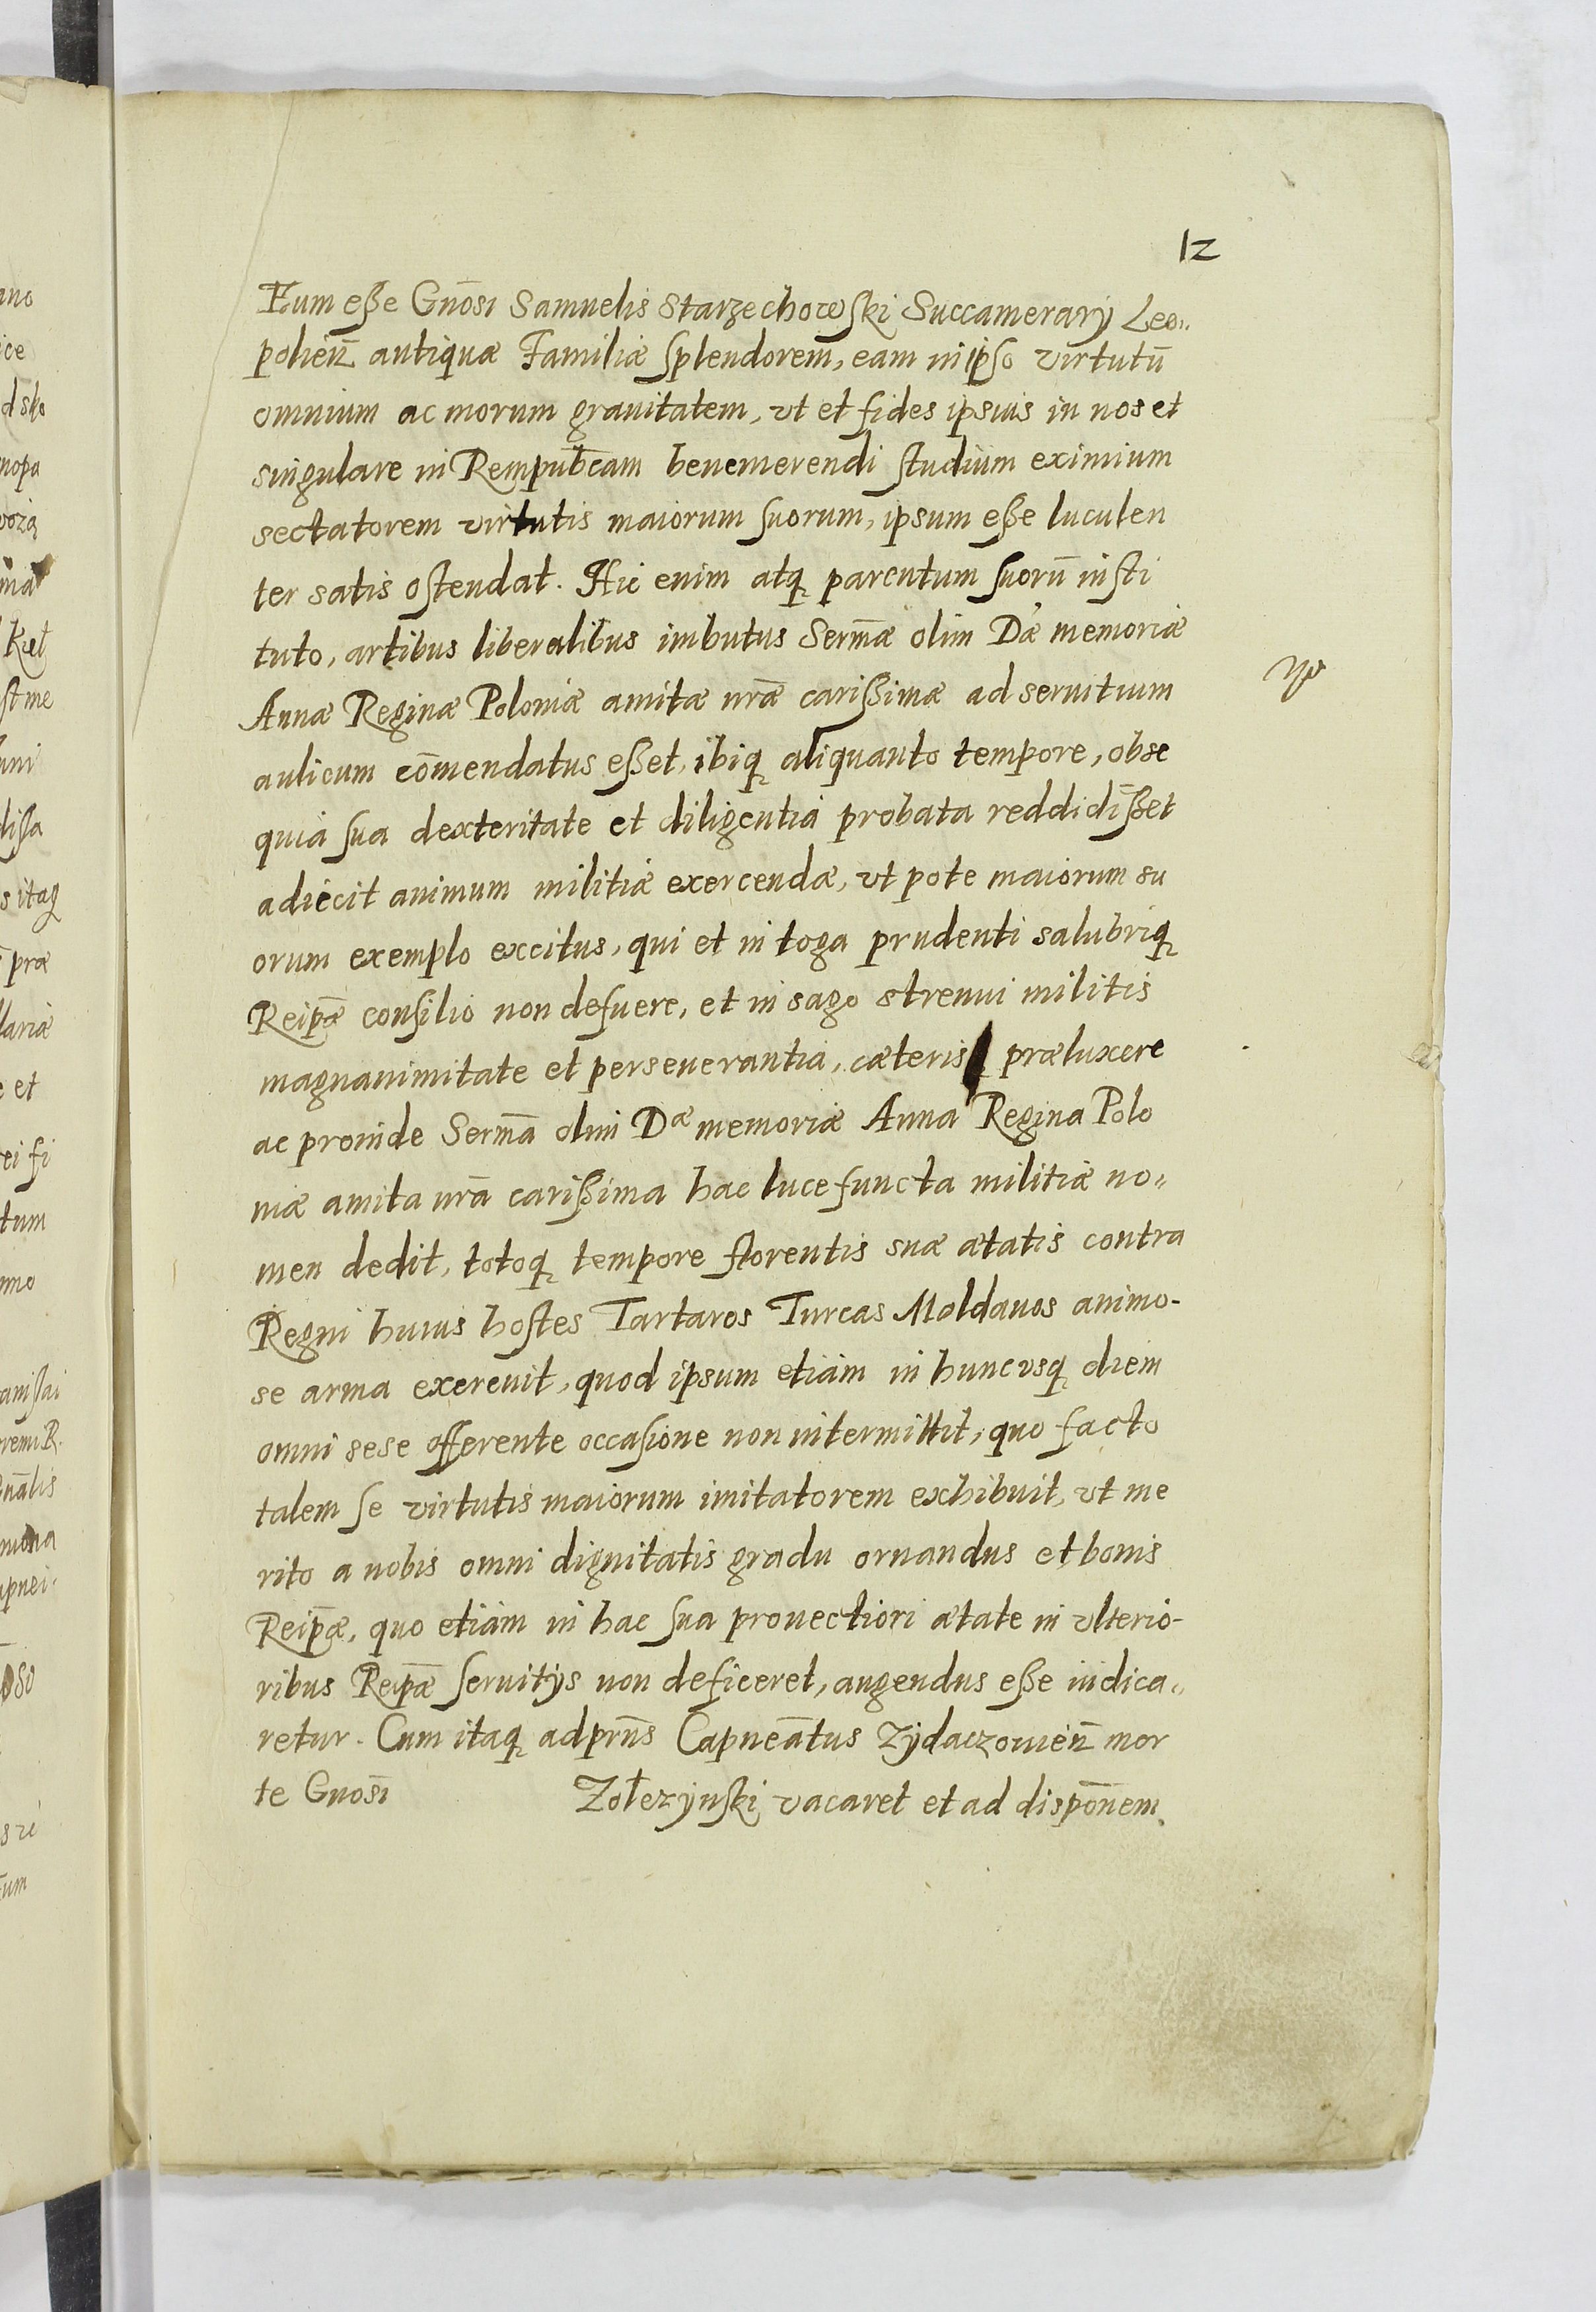 12
Eum eße Gn̄osi Samuelis Starzechowſki Succamerarij Leo„
polień antiquæ Familiæ ſplendorem, eam in ipſo virtutū
omnium ac morum grauitatem, vt et fides ipsius in nos et
singulare in Rempub̄cam benemerendi ſtudium eximium
sectatorem virtutis maiorum ſuorum, ipsum eße luculen
ter satis oſtendat. Hic enim atq̨ parentum ſuorū inſti
tuto, artibus liberalibus imbutus Serm̄æ olim Dæ memoriæ
Annæ Reginæ Poloniæ amitæ nr̄æ carißimæ ad seruitium
aulicum com̄endatus eßet, ibiq̨ aliquanto tempore, obse
quia ſua dexteritate et diligentia probata reddidißet
adiecit animum militiæ exercendæ, vt pote maiorum su
orum exemplo excitus, qui et in toga prudenti salubriq̨
Reip̄æ conſilio non defuere, et in sago strenui militis
magnanimitate et perseuerantia, cæteris præluxere
ac proinde Serm̄a olim Dæ memoriæ Anna Regina Polo
niæ amita nr̄a carißima hac luce functa militiæ no„
men dedit, totoq̨ tempore florentis suæ ætatis contra
Regni huius hoſtes Tartaros Turcas Moldauos animo-
se arma exereuit, quod ipsum etiam in huncvsq̨ diem
omni sese offerente occaſione non intermittit, quo facto
talem ſe virtutis maiorum imitatorem exhibuit, vt me
rito a nobis omni dignitatis gradu ornandus et bonis
Reip̄æ, quo etiam in hac ſua prouectiori ætate in vlterio-
ribus Reip̄æ ſeruitijs non deficeret, augendus eße iudica„
retur. Cum itaq̨ ad prn̄s Capneātus Zydaczouień mor
te Gnosī Zołczynſki vacaret et ad dispōnem